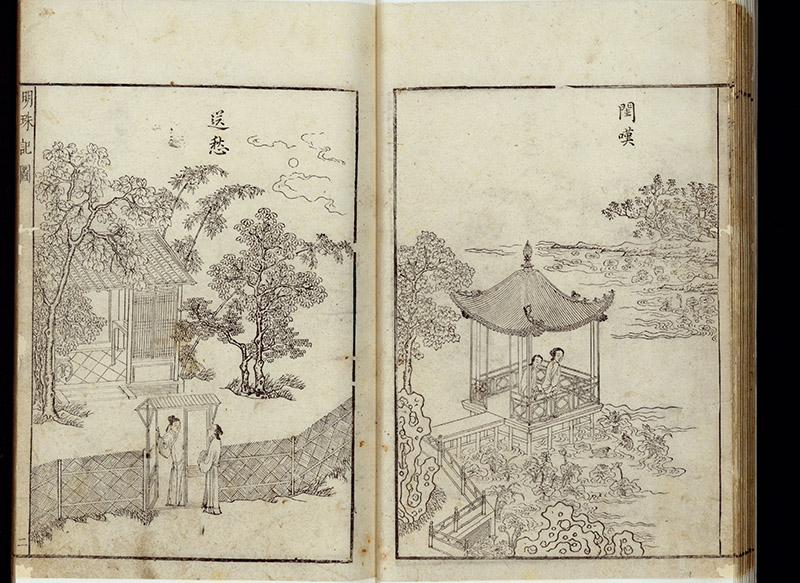 閨嘆
送愁
明珠記圖
二